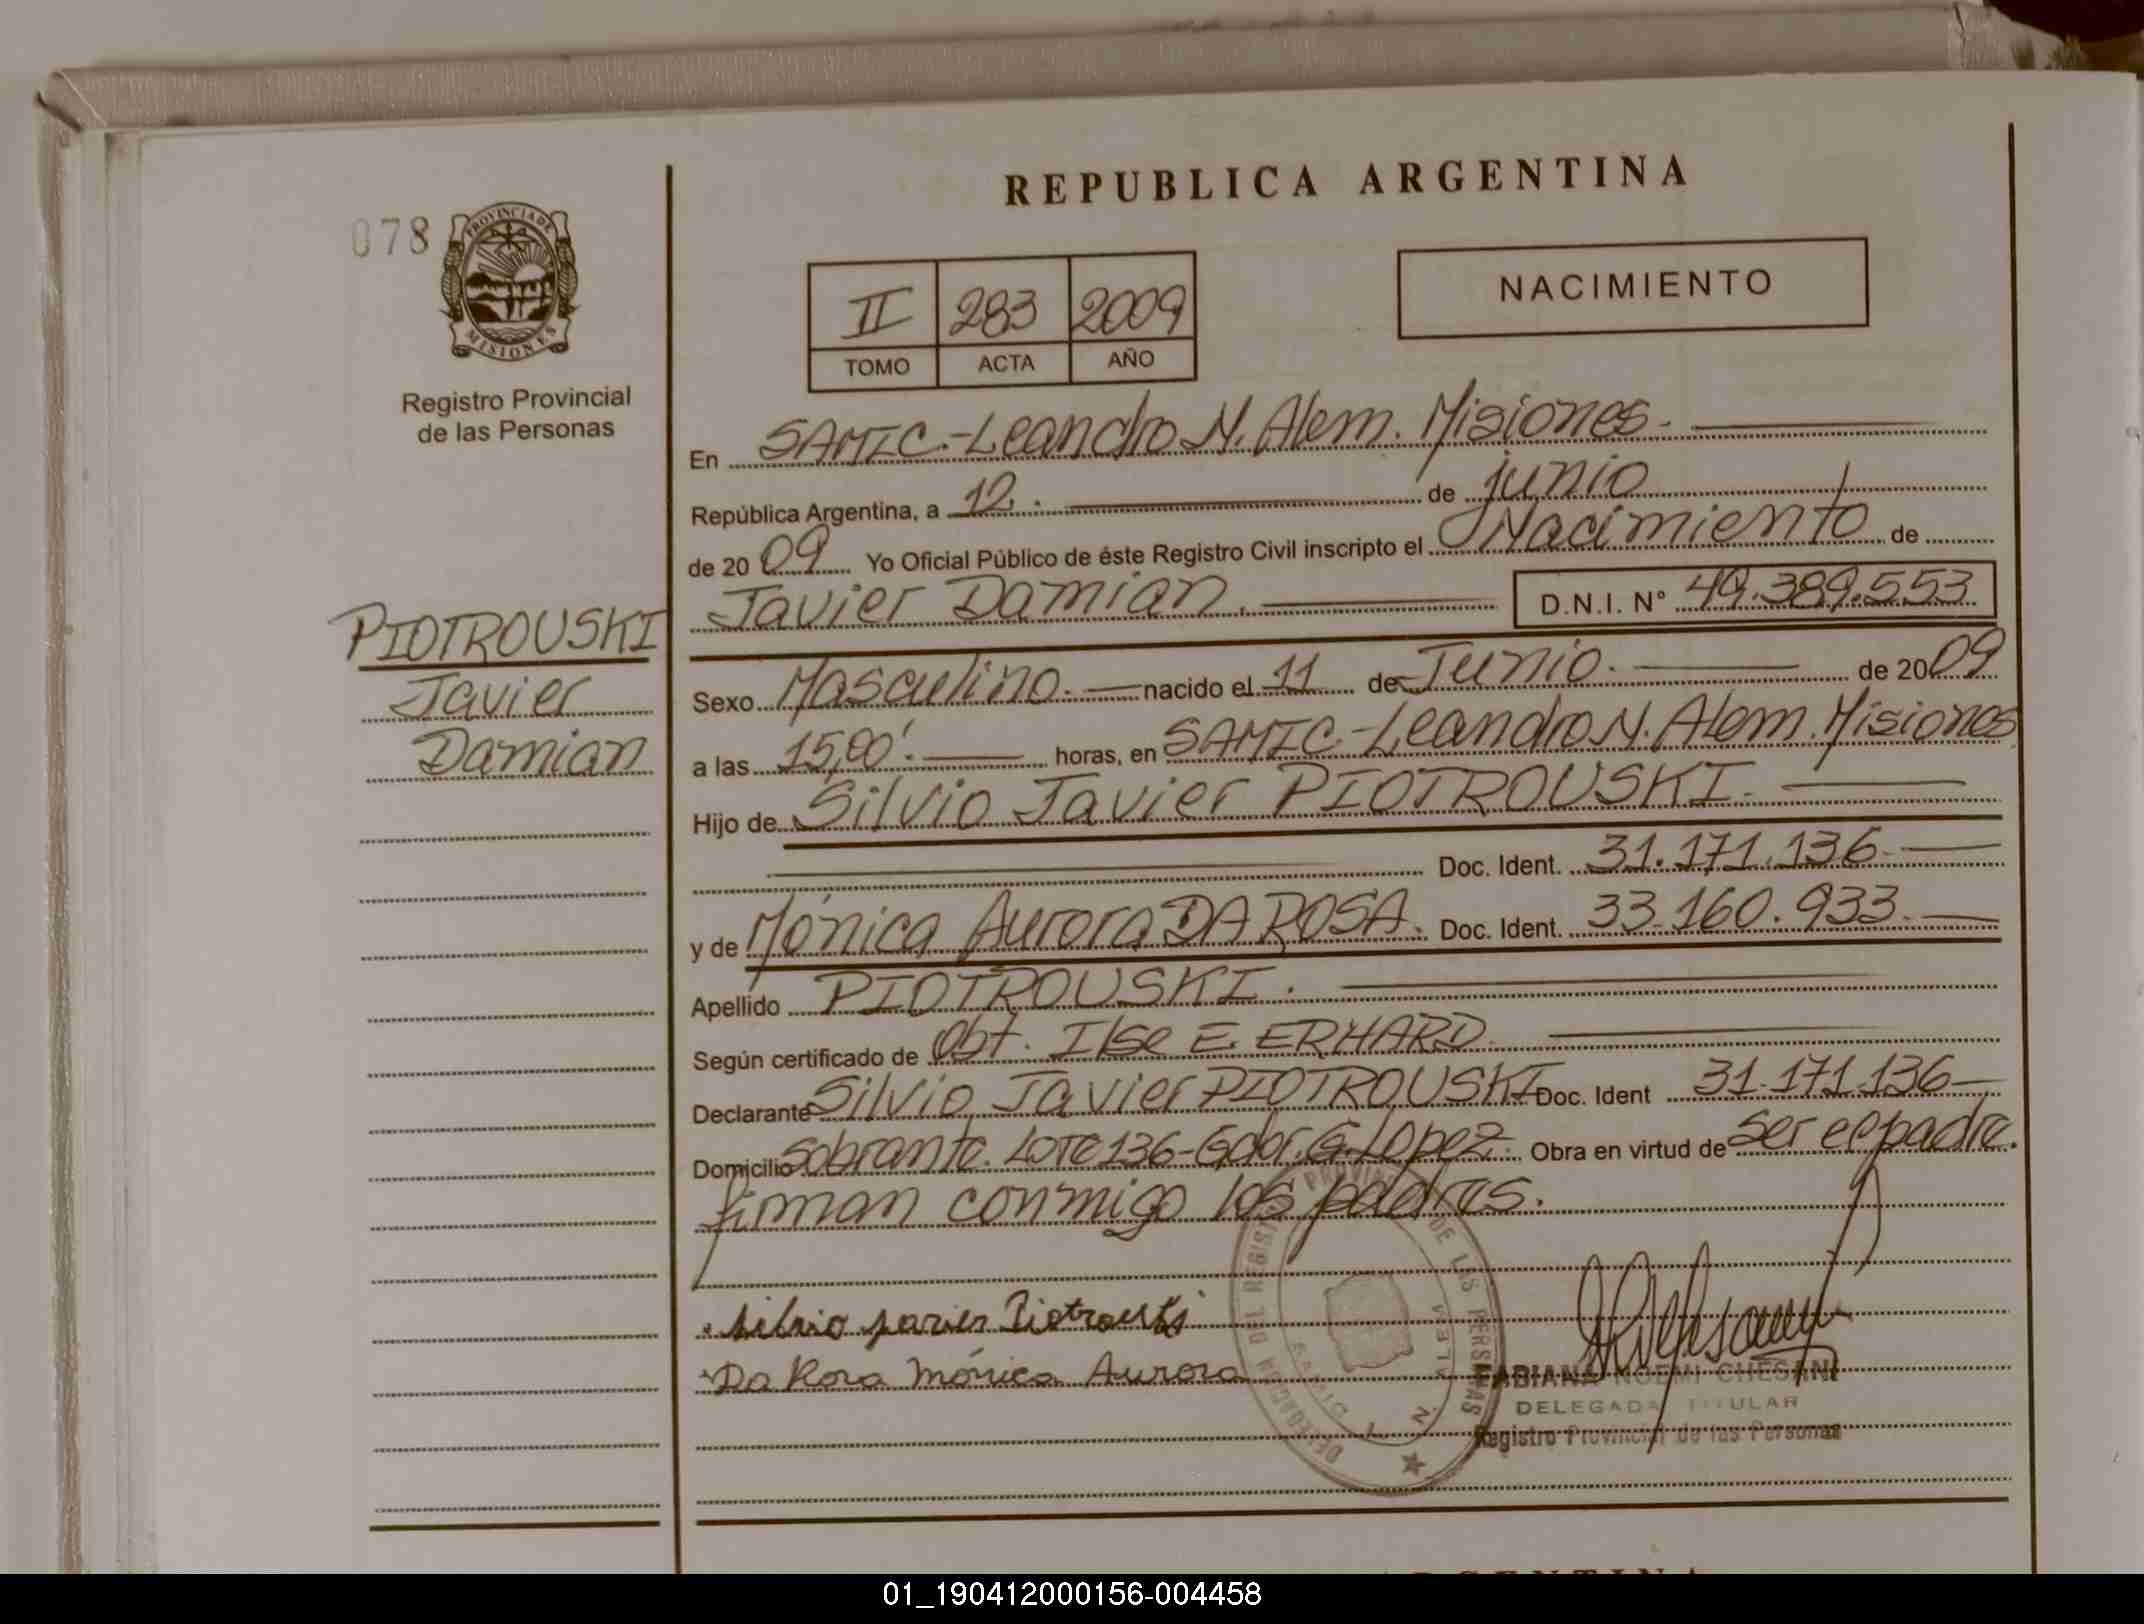 REPUBLICA ARGENTINA
078
PROVINCIA DE
MISIONES
Registro Provincial
de las Personas
II 283 2009
TOMO ACTA AÑO
NACIMIENTO
En SAMIC.-Leandro N. Alem. Misiones.-
República Argentina, a 12. de junio
de 2009 Yo Oficial Público de éste Registro Civil inscripto el Nacimiento de
Javier Damian. D.N.I. N° 49.389.553
PIOTROUSKI
Javier
Damian
Sexo Masculino. nacido el 11 de Junio. de 2009
a las 15,00'. horas, en SAMIC.-Leandro N. Alem. Misiones
Hijo de Silvio Javier PIOTROUSKI.
Doc. Ident. 31.171.136-
y de Mónica Aurora DA ROSA. Doc. Ident. 33.160.933.-
Apellido PIOTROUSKI.
Según certificado de Obt. Ilse E. ERHARD.
Declarante Silvio Javier PIOTROUSKI Doc. Ident 31.171.136-
Domicilio Sobrante. Lote 136-Gdor. G. Lopez. Obra en virtud de ser el padre.
firman conmigo los padres.
silvio javier Piotrouski
Da Rosa Mónica Aurora
DELEGACION DEL REGIST DE LAS PERSONAS
N. ALEM
FABIANA NOEMI CHESANI
DELEGADA TITULAR
Registro Provincial de las Personas
ARGENTINA
01_190412000156-004458